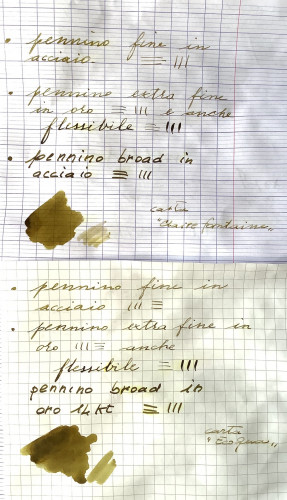 • pennino fine in
acciaio. = III
• pennino extra fine
in oro ≡ III e anche
flessibile = III
• pennino broad in
acciaio ≡ III
carta
"Claire fontaine"
• pennino fine in
acciaio III ≡
• pennino extra fine in
oro III = anche
flessibile = III
pennino broad in
oro 14 kt = III
carta